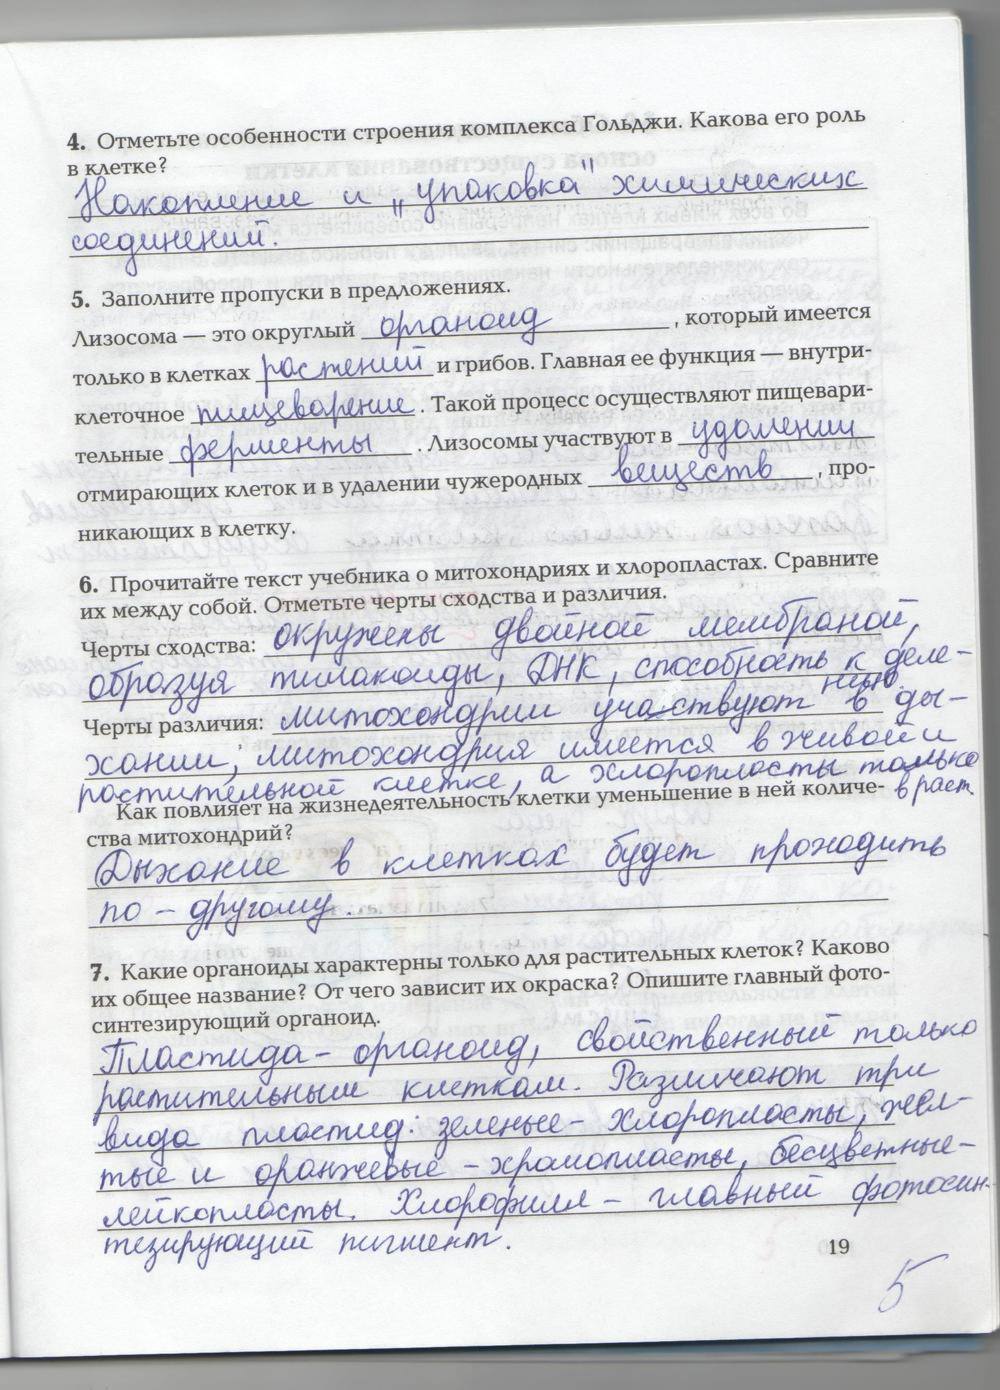 4. Отметьте особенности строения комплекса Гольджи. Какова его роль
в клетке?
Накопление и „упаковка" химических
соединений.
5. Заполните пропуски в предложениях.
Лизосома — это округлый органоид, который имеется
только в клетках растений и грибов. Главная ее функция — внутри-
клеточное пищеварение. Такой процесс осуществляют пищевари-
тельные ферменты. Лизосомы участвуют в удалении
отмирающих клеток и в удалении чужеродных веществ, про-
никающих в клетку.
6. Прочитайте текст учебника о митохондриях и хлоропластах. Сравните
их между собой. Отметьте черты сходства и различия.
Черты сходства: окружены двойной мембраной,
образуя тилакоиды, ДНК, способность к деле-
нию
Черты различия: митохондрии участвуют в ды-
хании, митохондрия имеется в живой и
растительной клетке, а хлоропласты только
в раст.
Как повлияет на жизнедеятельность клетки уменьшение в ней количе-
ства митохондрий?
Дыхание в клетках будет проходить
по-другому.
7. Какие органоиды характерны только для растительных клеток? Каково
их общее название? От чего зависит их окраска? Опишите главный фото-
синтезирующий органоид.
Пластида - органоид, свойственный только
растительным клеткам. Различают три
вида пластид: зеленые - хлоропласты, жел-
тые и оранжевые - хромопласты, бесцветные -
лейкопласты. Хлорофилл - главный фотосин-
тезирующий пигмент.
19
5